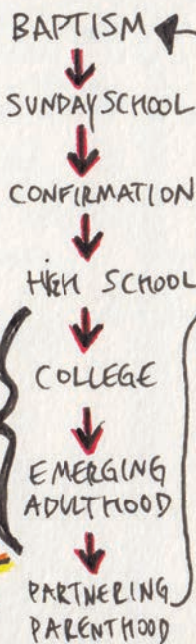 BAPTISM
SUNDAY SCHOOL
CONFIRMATION
HIGH SCHOOL
COLLEGE
EMERGING
ADULTHOOD
PARTNERING
PARENTHOOD